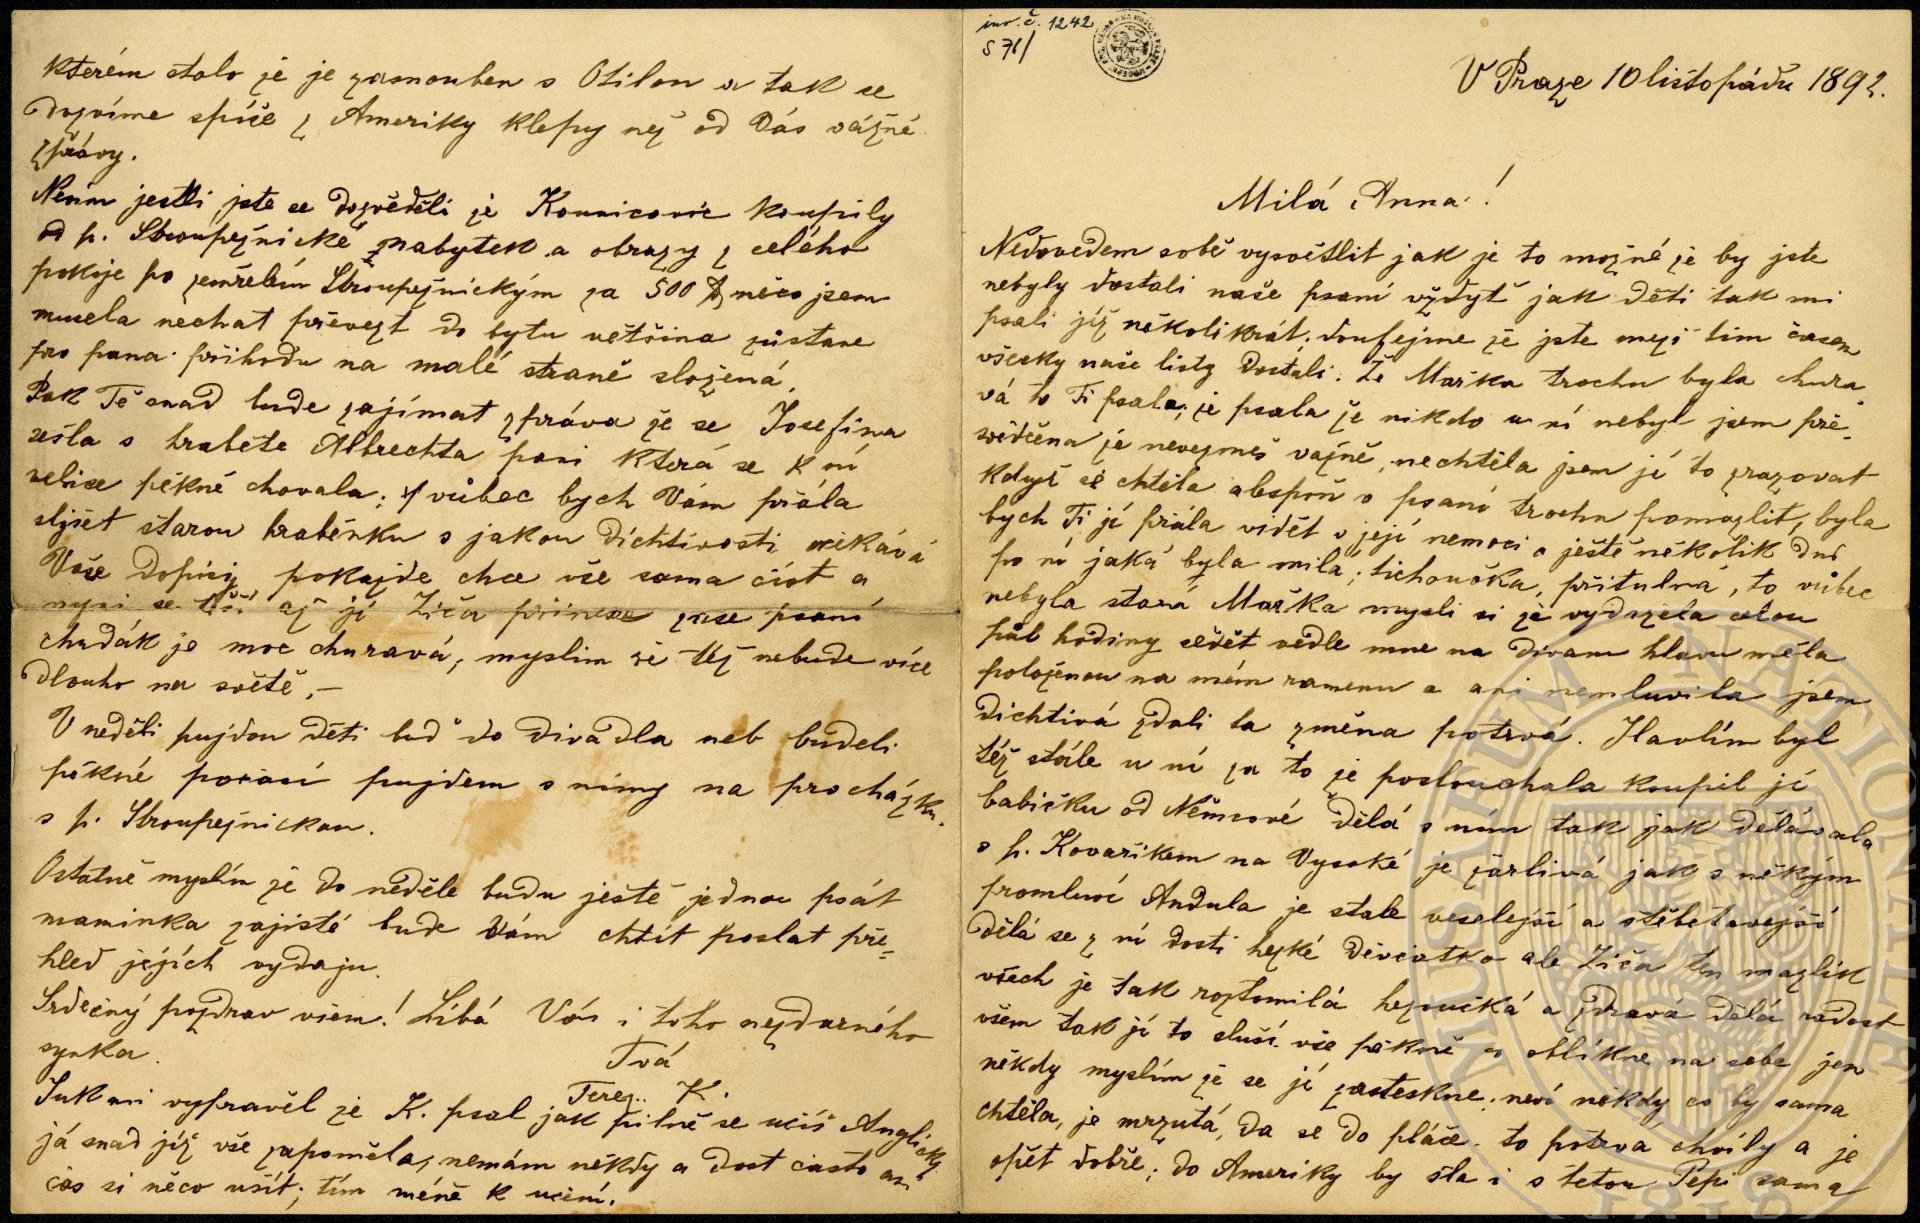 inv. č. 1242
S 76/
V Praze 10 listopadu 1892.
Milá Anna!
Nedovedem sobě vysvětlit jak je to možné že by jste
nebyly dostali naše psaní vždyť jak děti tak mi
psali jíž několikrát. doufejme že jste mezi tím časem
všecky naše listy dostali. Že Mařka trochu byla chura-
vá to Ti psala, že psala že nikdo u ní nebyl jsem pře-
svědčena že nevezmeš vážně, nechtěla jsem jí to zrazovat
když sě chtěla alespoň v psaní trochu pomazlit, byla
bych Ti jí přála vidět v její nemoci a ještě několik dnů
po ní jaká byla milá, tichoučka, přitulná, to vůbec
nebyla stará Mařka mysli si že vydržela celou
půl hodiny sedět vedle mne na divanu hlavu měla
položenou na mém ramenu a ani nemluvila jsem
dichtivá zdali ta změna potrvá. Havlím byl
též stále u ní za to že poslouchala koupil jí
babičku od Němcové dělá s ním tak jak dělávala
s p. Kovaříkem na Vysoké je žárlivá jak s někým
promluví Andula je stale veselejší a štěbetavější
dělá se z ní dosti hezké děvčatko ale Ziča ten mazlík
všech je tak roztomilá hezoučká a zdravá dělá radost
všem tak jí to sluší vše pěkně co oblíkne na sebe jen
někdy myslím že se jí zasteskne, neví někdy co by sama
chtěla, je mrzutá, da se do pláče. to potrva chvíly a je
opět dobře; do Ameriky by šla i s tetou Pepi sama
kterém stalo že je zasnouben s Otilou a tak se
dozvíme spíše z Ameriky klepy než od Vás vážné
zprávy.
Nevím jestli jste se dozvěděli že Kounicovic koupily
od p. Stroupežnické nabytek a obrazy z celého
pokoje po zemřelém Stroupežnickým za 500 zl něco jsem
musela nechat převezt do bytu většina zůstane
pro pana příhodu na malé straně složená.
Pak Tě snad bude zajímat zpráva že se Josefina
sešla s hraběte Albrechta paní která se k ní
velice pěkně chovala; vůbec bych Vám přála
slyšet starou hraběnku s jakou dichtivosti očekává
Vaše dopisy pokajde chce vše sama číst a
nyní se těší až jí Ziča přinese zase psaní
chudák je moc churavá, myslim že též nebude více
dlouho na světě,-
V neděli pujdou děti buď do divadla neb budeli
pěkné počasí pujdem s nimy na procházku
s p. Stroupežnickou.
Ostatně myslím že do neděle budu ještě jednou psát
maminka zajisté bude Vám chtít poslat pře-
hled jejích vydaju.
Srdečný pozdrav všem! Líbá Vás i toho nezdarného
synka.
Tvá
Terez. K.
Suk mi vypravěl že K. psal jak pilně se učíš Anglicky,
já snad jíž vše zapoměla, nemám někdy a dost často an-
čas si něco ušít; tím méně k učení.
MUSAEUM NATIONALE
1818